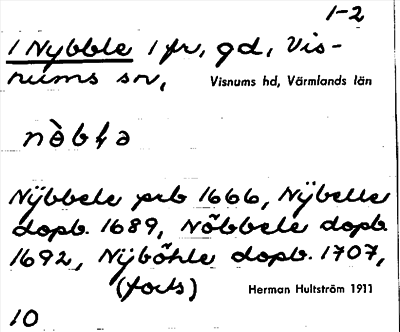 1-2
1 Nybble 1 fr, gd, Vis-
nums sn,
Visnums hd, Värmlands län
Nÿbbele prb 1666, Nÿbelle
dopb. 1689, Nõbbele dopb.
1692, Nÿbõhle dopb. 1707,
(forts)
Herman Hultström 1911
10